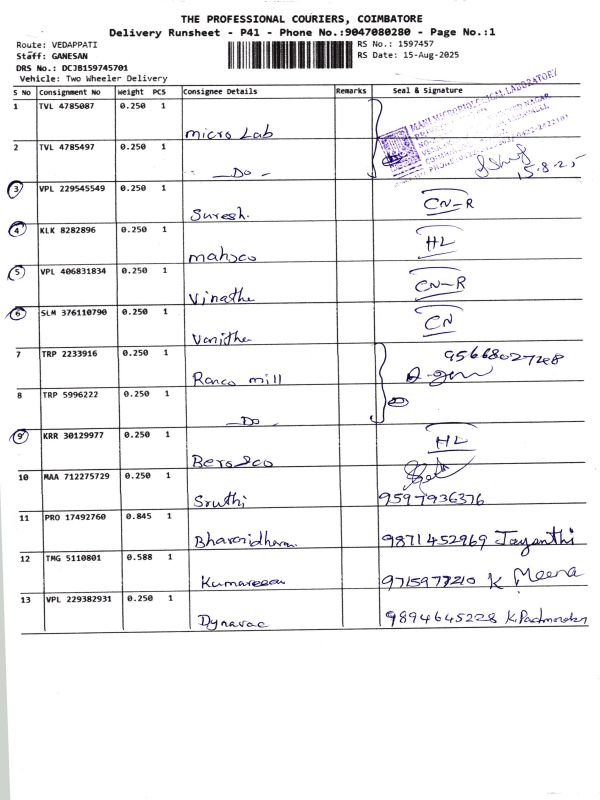 THE PROFESSIONAL COURIERS, COIMBATORE
Delivery Runsheet - P41 - Phone No.:9047080280 - Page No.:1
Route: VEDAPPATI
RS No.: 1597457
Staff: GANESAN
RS Date: 15-Aug-2025
DRS No.: DCJB159745701
Vehicle: Two Wheeler Delivery
S No Consignment No Weight PCS Consignee Details Remarks Seal & Signature
1 TVL 4785087 0.250 1 Micro Lab
MANU MICROBIOLOGICAL LABORATORY
2 TVL 4785497 0.250 1 - Do - 15-8-25
3 VPL 229545549 0.250 1 Suresh. CN-R
4 KLK 8282896 0.250 1 mahsco HL
5 VPL 406831834 0.250 1 Vinathe CN-R
6 SLM 376110790 0.250 1 Vanitha CN
7 TRP 2233916 0.250 1 Ranco mill 95668027248
8 TRP 5996222 0.250 1 - Do -
9 KRR 30129977 0.250 1 HL
10 MAA 712275729 0.250 1 Sruthi 9597936376
11 PRO 17492760 0.845 1 9871452969 Jayanthi
12 TMG 5110801 0.588 1 Kumaresan 9715977210 K Meena
13 VPL 229382931 0.250 1 Dynavac 9894645228